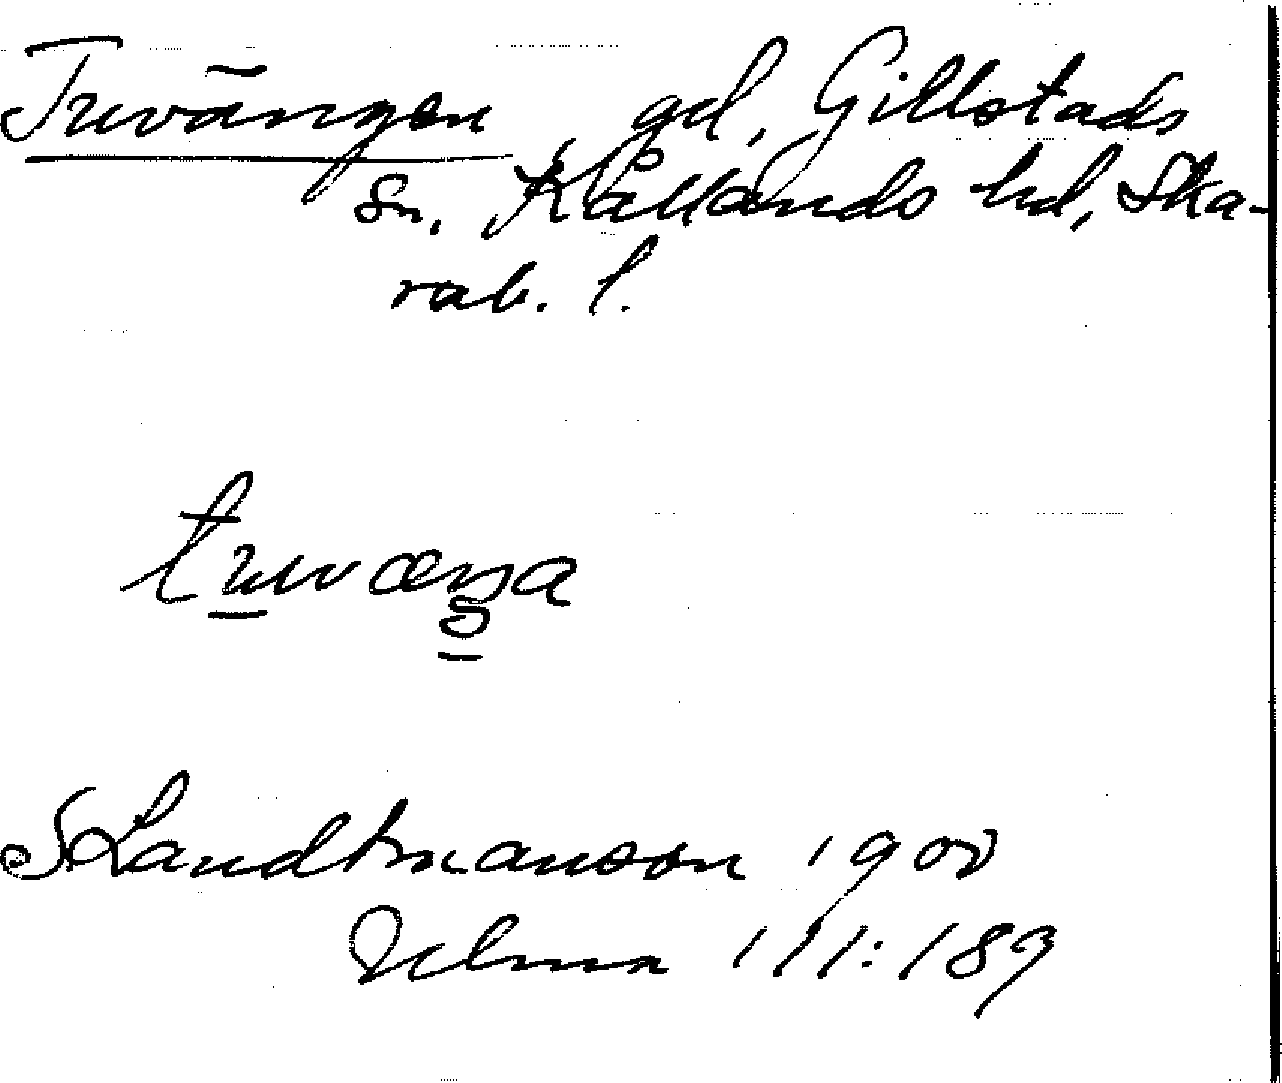 Truvängen gd, Gillstads
sn, Kållands hd, Ska-
rab. l.
truvæŋa
S Landtmanson 1900
Ulma 111:189